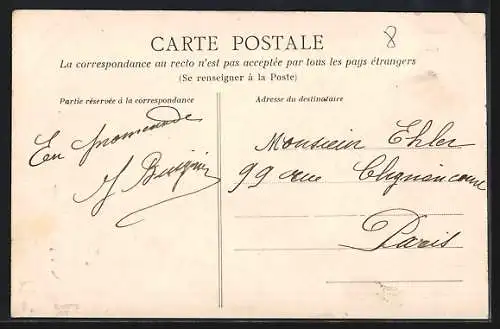 CARTE POSTALE
8
La correspondance au recto n'est pas acceptée par tous les pays étrangers
(Se renseigner à la Poste)
Partie réservée à la correspondance
Adresse du destinataire
En promenade
Monsieur Ehler
99 rue Clignancourt
Paris